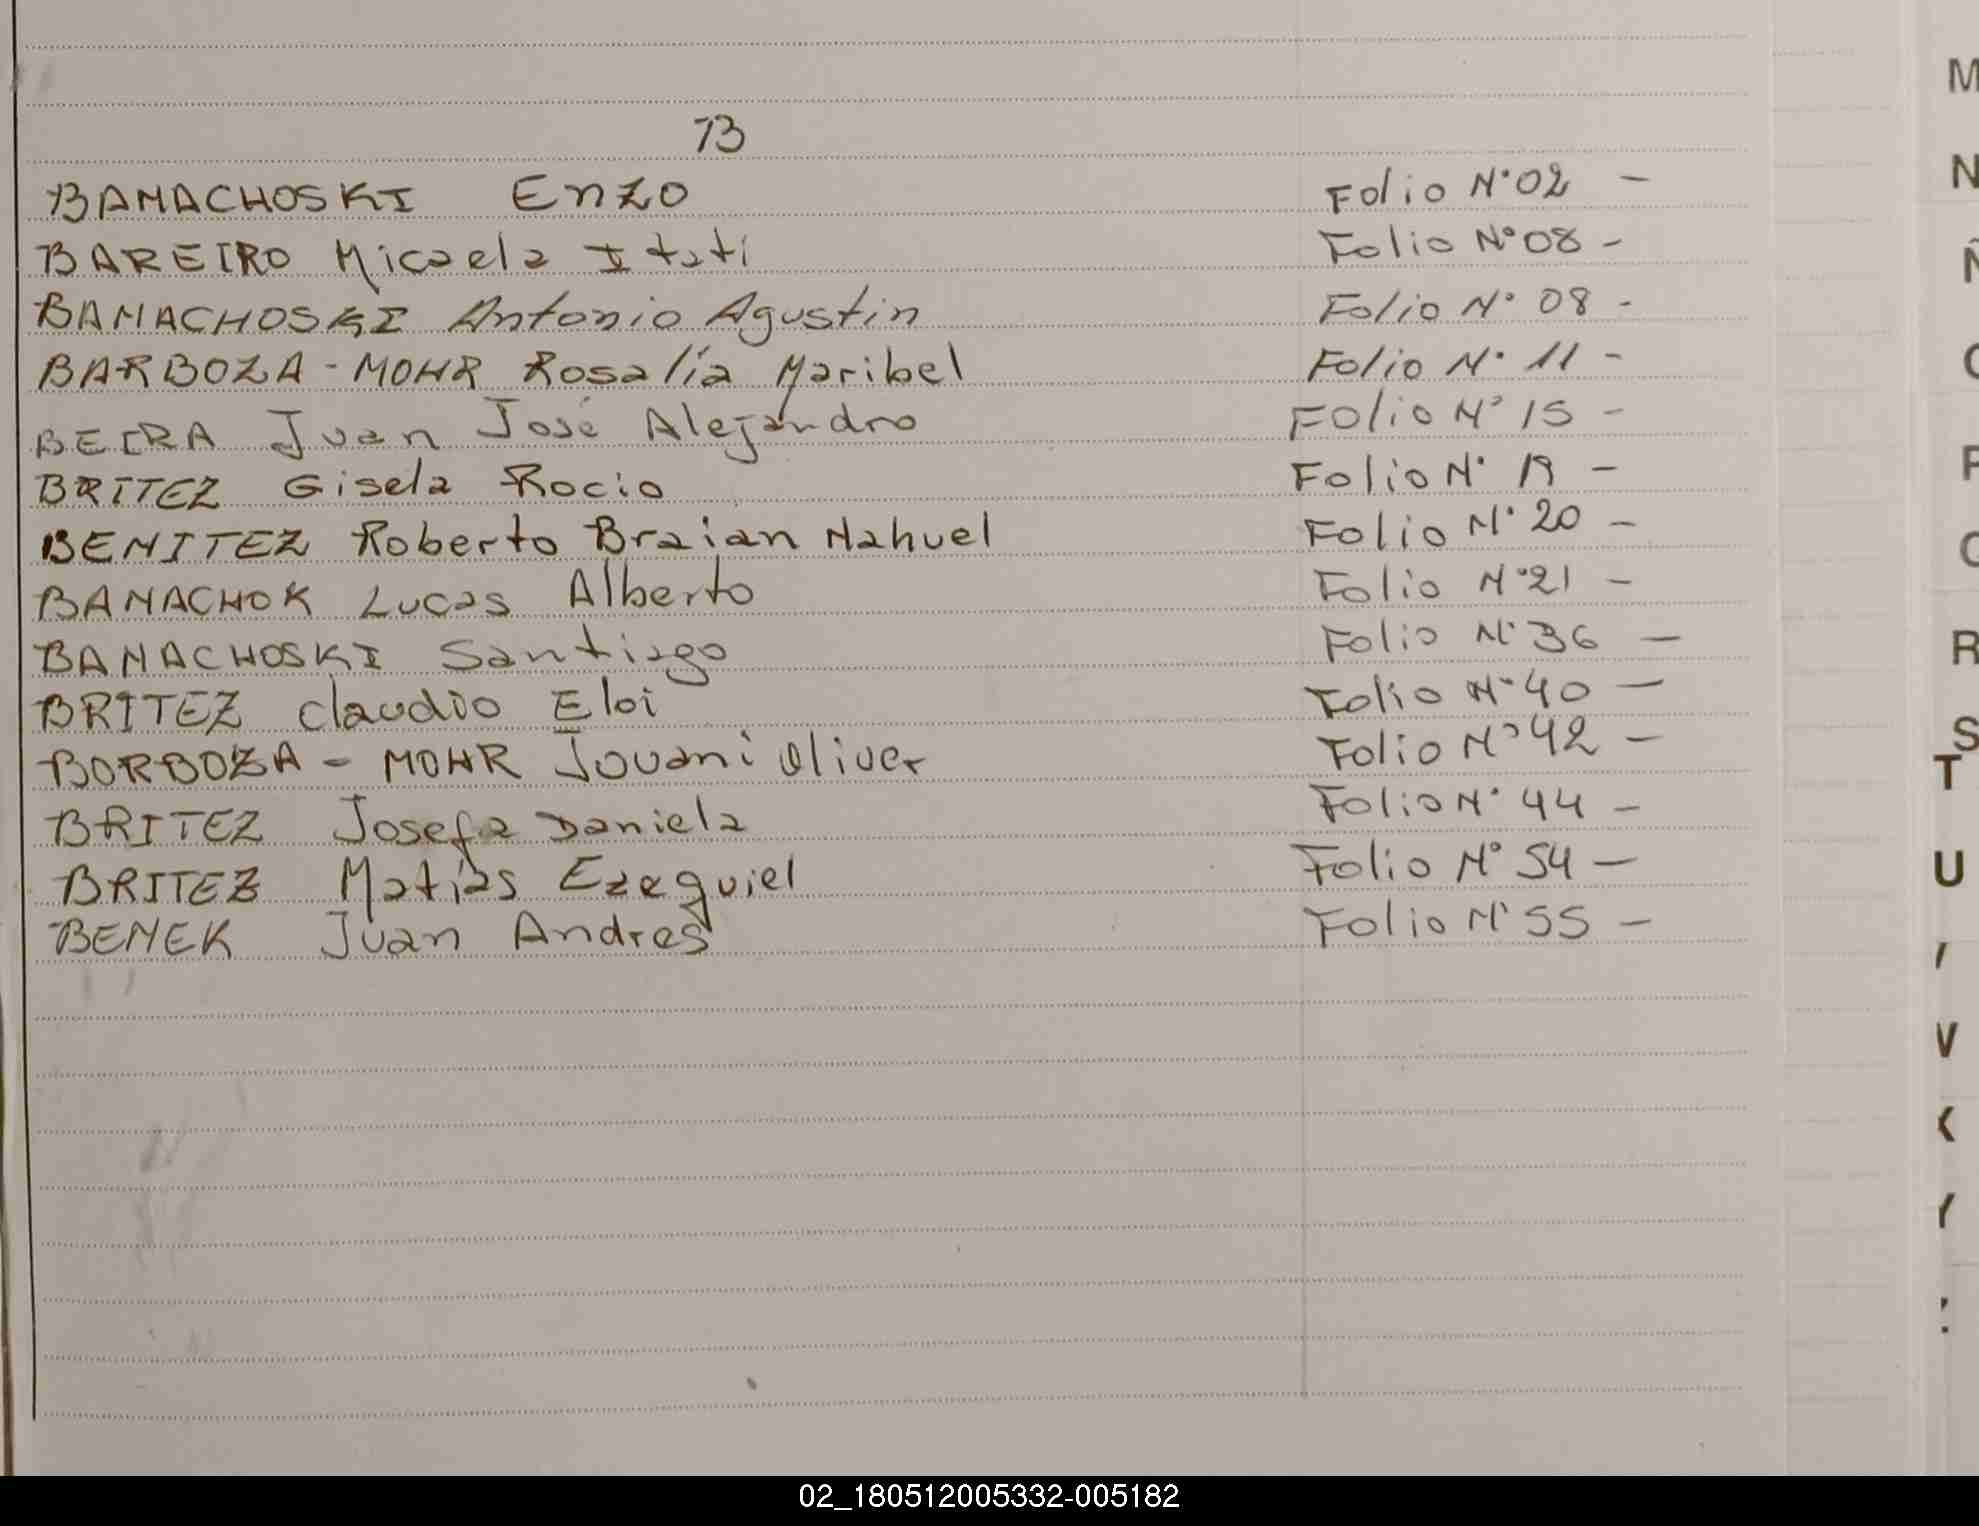 B
BANACHOSKI Enzo Folio N°02 -
BAREIRO Micaela Itati Folio N°08 -
BANACHOSKI Antonio Agustin Folio N° 08 -
BARBOZA - MOHR Rosalía Maribel Folio N° 11 -
BEIRA Juan José Alejandro Folio N° 15 -
BRITEZ Gisela Rocio Folio N° 19 -
BENITEZ Roberto Braian Nahuel Folio N° 20 -
BANACHOK Lucas Alberto Folio N°21 -
BANACHOSKI Santiago Folio N°36 -
BRITEZ Claudio Eloi Folio N°40 -
BORBOZA - MOHR Jovani Oliver Folio N°42 -
BRITEZ Josefa Daniela Folio N° 44 -
BRITEZ Matias Ezequiel Folio N° 54 -
BENEK Juan Andres Folio N°55 -
M
N
Ñ
R
S
T
U
V
Y
02_180512005332-005182